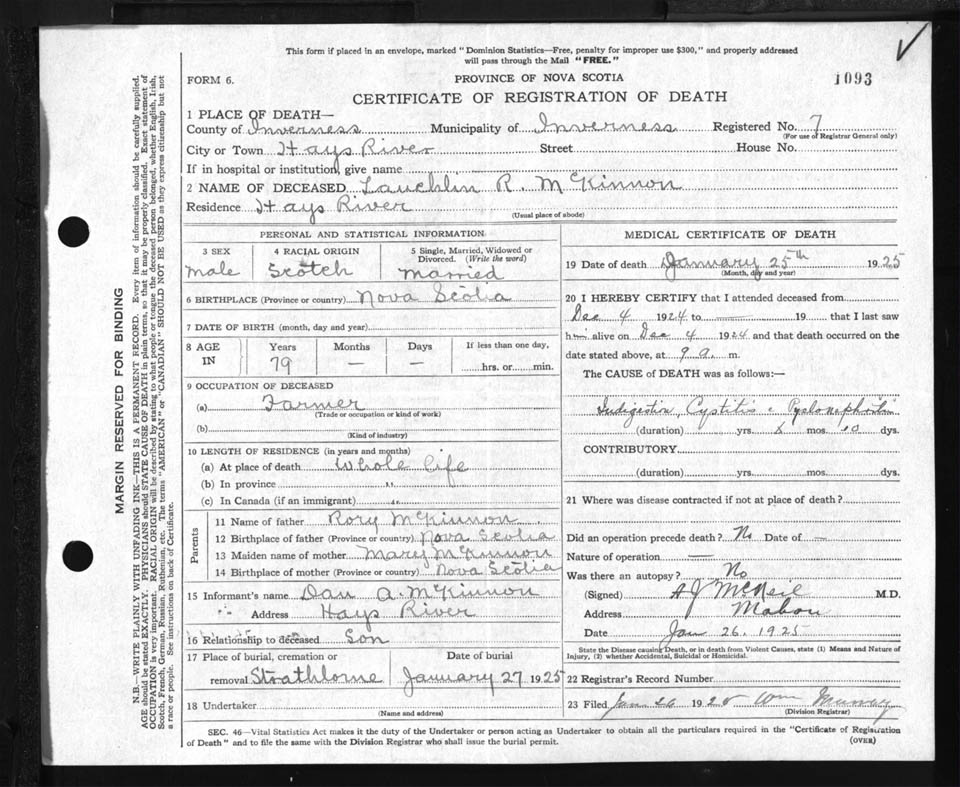 This form if placed in an envelope, marked "Dominion Statistics—Free, penalty for improper use $300," and properly addressed
will pass through the Mail "FREE."
FORM 6.
PROVINCE OF NOVA SCOTIA
1093
CERTIFICATE OF REGISTRATION OF DEATH
1 PLACE OF DEATH—
County of Inverness Municipality of Inverness Registered No. 7
(For use of Registrar General only)
City or Town Hays River Street House No.
If in hospital or institution, give name —
2 NAME OF DECEASED Lauchlin R. McKinnon
Residence Hays River
(Usual place of abode)
PERSONAL AND STATISTICAL INFORMATION
3 SEX 4 RACIAL ORIGIN 5 Single, Married, Widowed or
Divorced. (Write the word)
Male Scotch Married
6 BIRTHPLACE (Province or country) Nova Scotia
7 DATE OF BIRTH (month, day and year)
8 AGE Years Months Days If less than one day,
IN 79 — — hrs. or min.
9 OCCUPATION OF DECEASED
(a) Farmer
(Trade or occupation or kind of work)
(b)
(Kind of industry)
10 LENGTH OF RESIDENCE (in years and months)
(a) At place of death whole life
(b) In province "
(c) In Canada (if an immigrant) "
Parents
11 Name of father Rory McKinnon
12 Birthplace of father (Province or country) Nova Scotia
13 Maiden name of mother Mary McKinnon
14 Birthplace of mother (Province or country) Nova Scotia
15 Informant's name Dan A. McKinnon
" Address Hays River
16 Relationship to deceased Son
17 Place of burial, cremation or Date of burial
removal Strathlorne January 27 1925
18 Undertaker
(Name and address)
MEDICAL CERTIFICATE OF DEATH
19 Date of death January 25th 1925
(Month, day and year)
20 I HEREBY CERTIFY that I attended deceased from
Dec 4 1924 to — 19 that I last saw
him alive on Dec 4 1924 and that death occurred on the
date stated above, at 9 a. m.
The CAUSE of DEATH was as follows:—
Indigestion, Cystitis & Pyelonephritis
(duration) yrs. x mos. 10 dys.
CONTRIBUTORY
(duration) yrs. mos. dys.
21 Where was disease contracted if not at place of death?
Did an operation precede death? No Date of —
Nature of operation —
Was there an autopsy? No
(Signed) A J McNeil M.D.
Address Mabou
Date Jan 26. 1925
State the Disease causing Death, or in death from Violent Causes, state (1) Means and Nature of
Injury, (2) whether Accidental, Suicidal or Homicidal.
22 Registrar's Record Number
23 Filed Jan 26 1925 Wm Murray
(Division Registrar)
SEC. 46—Vital Statistics Act makes it the duty of the Undertaker or person acting as Undertaker to obtain all the particulars required in the "Certificate of Registration
of Death" and to file the same with the Division Registrar who shall issue the burial permit.
(OVER)
MARGIN RESERVED FOR BINDING
N.B.—WRITE PLAINLY WITH UNFADING INK—THIS IS A PERMANENT RECORD. Every item of information should be carefully supplied.
AGE should be stated EXACTLY. PHYSICIANS should STATE CAUSE OF DEATH in plain terms, so that it may be properly classified. Exact statement of
OCCUPATION is very important. RACIAL ORIGIN will be described by stating to what people or tongue the deceased person belonged, whether English, Irish,
Scotch, French, German, Russian, Ruthenian, etc. The terms "AMERICAN" or "CANADIAN" SHOULD NOT BE USED as they express citizenship but not
a race or people. See instructions on back of Certificate.